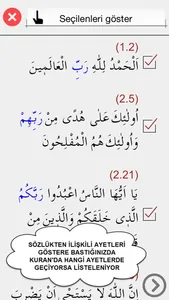 Seçilenleri göster
(1.2)
اَلْحَمْدُ لِلّٰهِ رَبِّ الْعَالَم۪ينَ
(2.5)
اُو۬لٰٓئِكَ عَلٰى هُدًى مِنْ رَبِّهِمْ
وَاُو۬لٰٓئِكَ هُمُ الْمُفْلِحُونَ
(2.21)
يَٓا اَيُّهَا النَّاسُ اعْبُدُوا رَبَّكُمُ
الَّذ۪ي خَلَقَكُمْ وَالَّذ۪ينَ مِنْ
SÖZLÜKTEN İLİŞKİLİ AYETLERİ
GÖSTERE BASTIĞINIZDA
KURAN'DA HANGİ AYETLERDE
GEÇİYORSA LİSTELENİYOR
اِنَّ اللّٰهَ لَا يَسْتَحْي۪ٓ اَنْ يَضْرِبَ